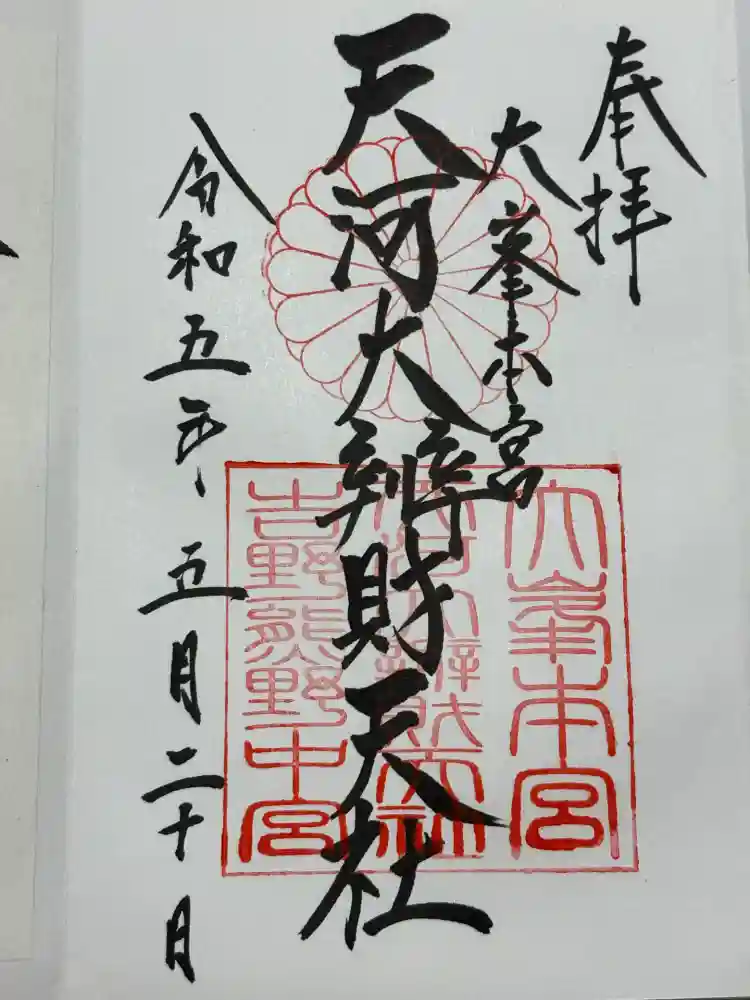 奉拝
大峯本宮
天河大辨財天社
令和五年 五月二十日
大峯本宮
天河大辨財天社
吉野熊野中宮